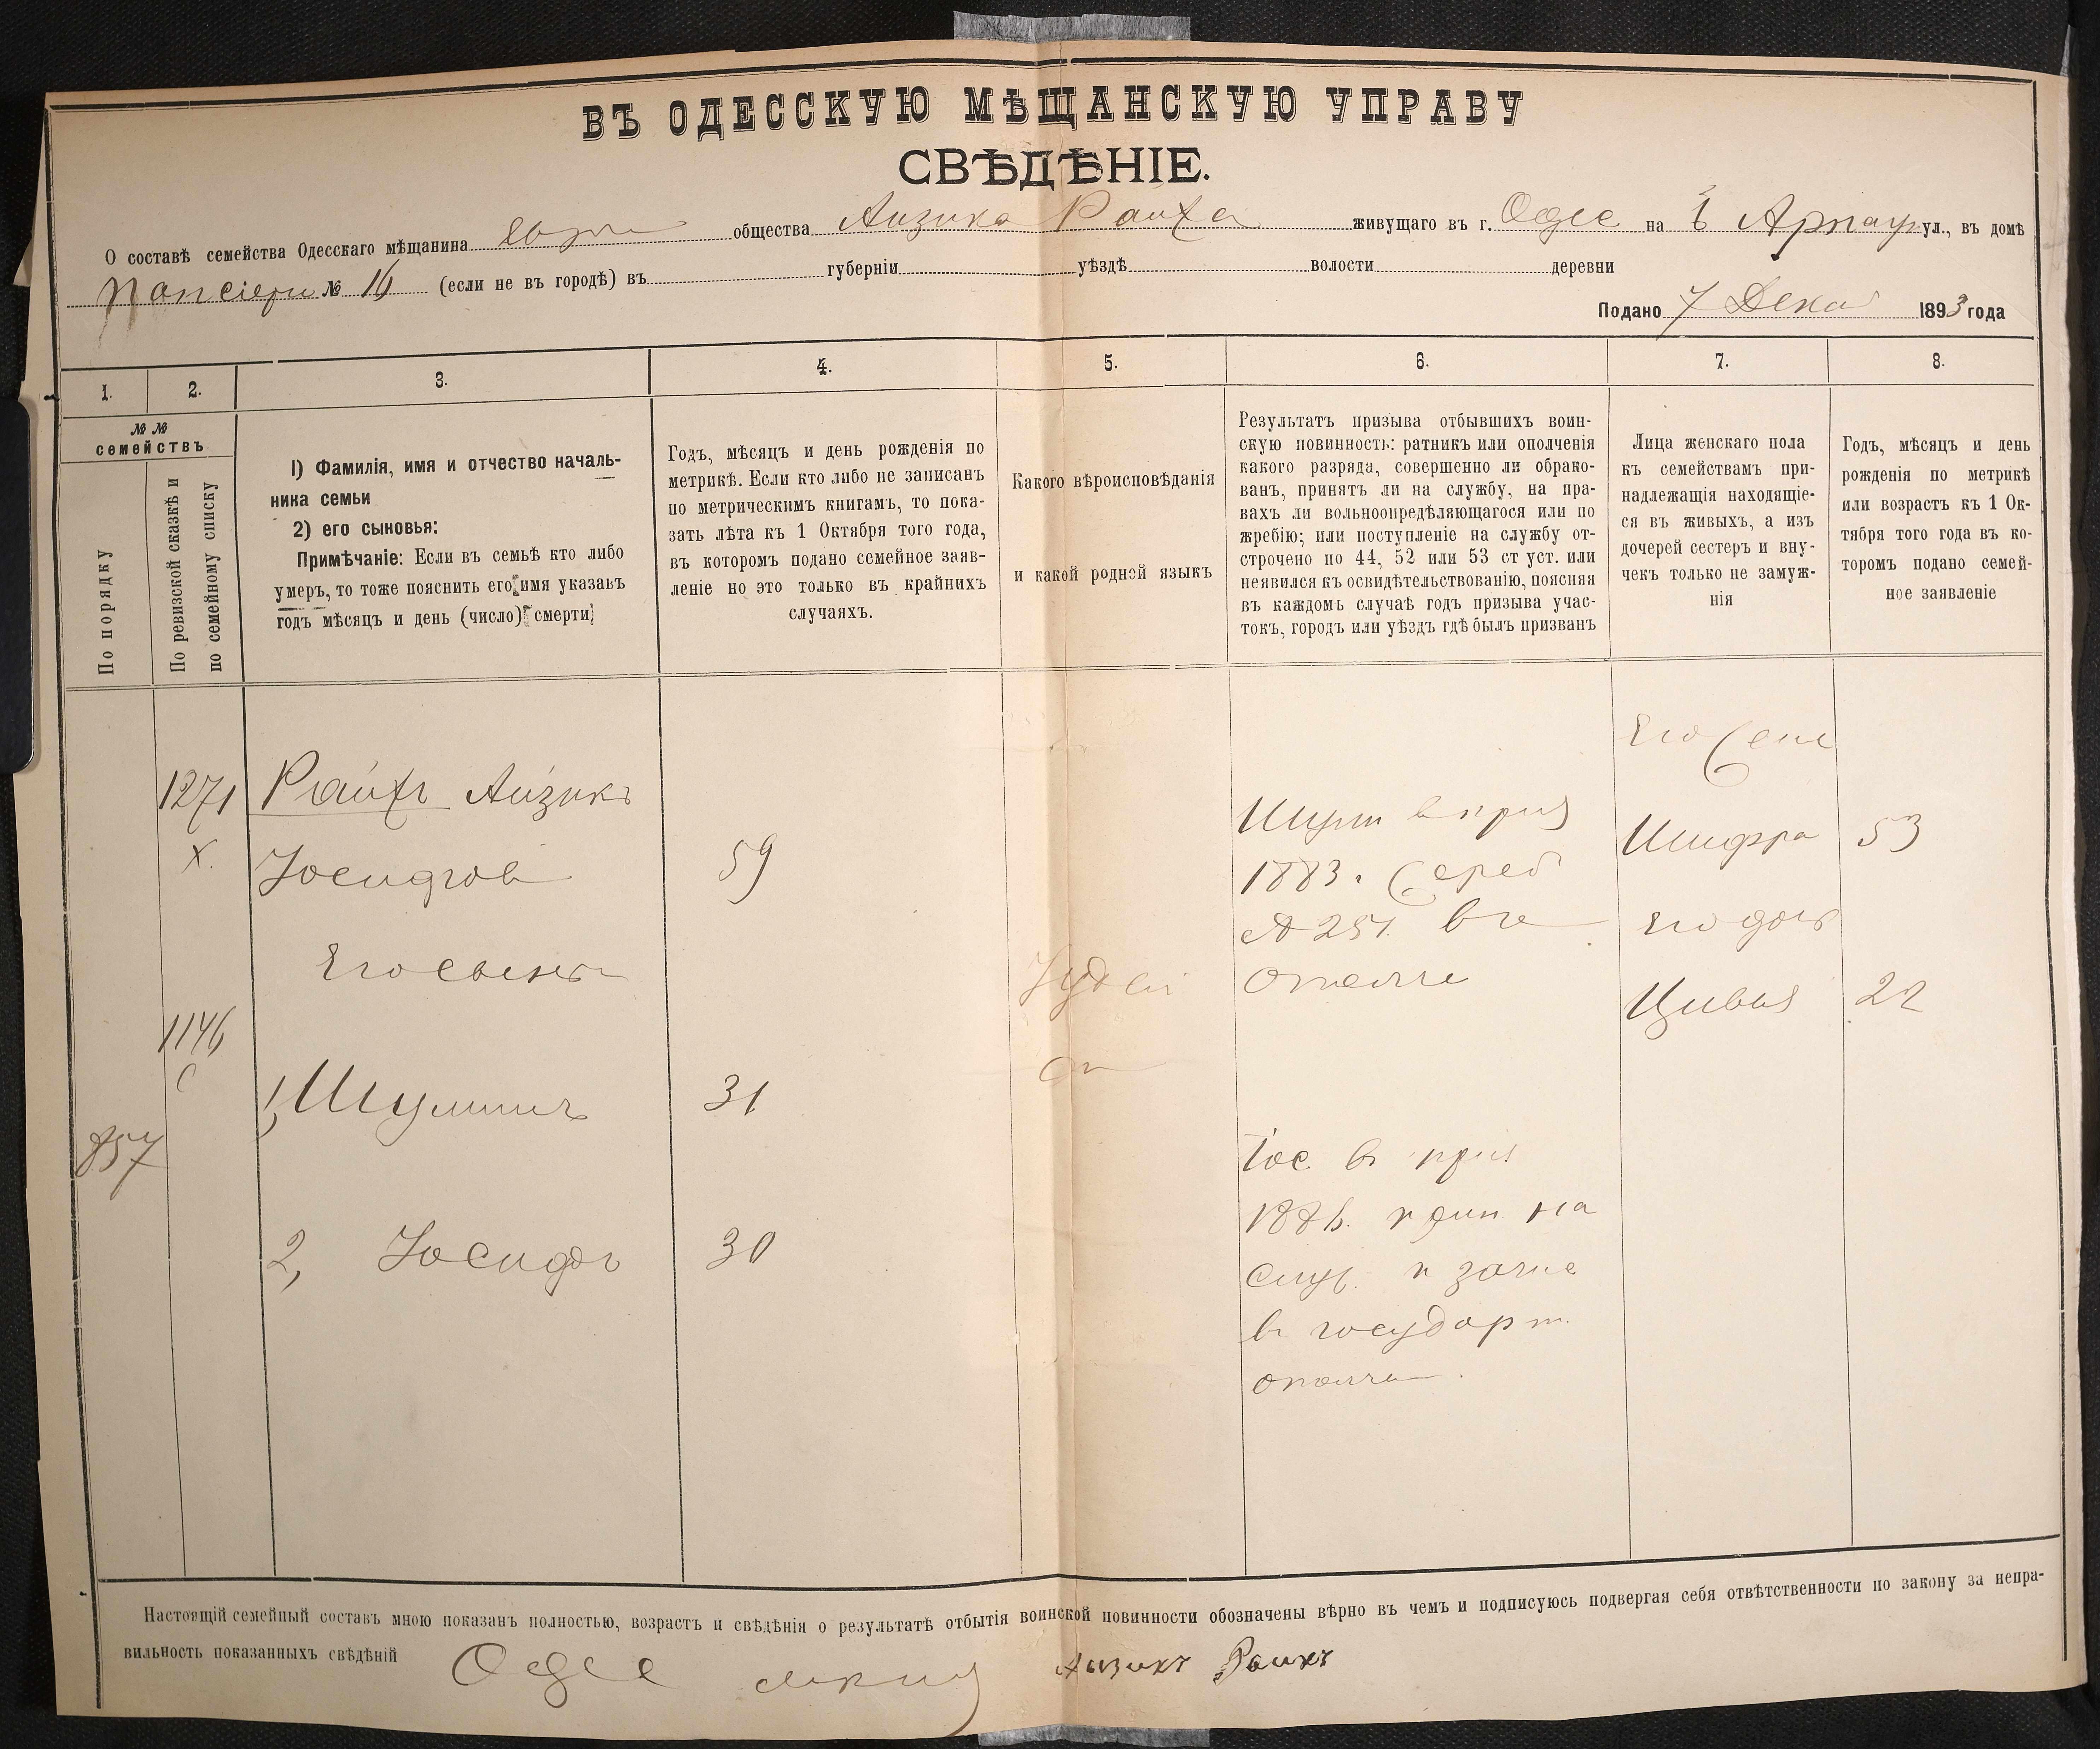 ВЪ ОДЕССКУЮ МѢЩАНСКУЮ УПРАВУ
СВѢДѢНІЕ.
О составѣ семейства Одесскаго мѣщанина общества Аизика Раиха живущаго въ г. Одес на Арнаут ул., въ домѣ
№ 16 (если не въ городѣ) въ губерніи уѣздѣ волости деревни
Подано 7 Декаб 1893 года
1. 2. 3. 4. 5. 6. 7. 8.
№ № семействъ
По порядку
По ревизской сказкѣ и
по семейному списку
1) Фамилія, имя и отчество началь-
ника семьи
2) его сыновья:
Примѣчаніе: Если въ семьѣ кто либо
умеръ, то тоже пояснить его имя указавъ
годъ мѣсяцъ и день (число) смерти
Годъ, мѣсяцъ и день рожденія по
метрикѣ. Если кто либо не записанъ
по метрическимъ книгамъ, то пока-
зать лѣта къ 1 Октября того года,
въ которомъ подано семейное заяв-
леніе но это только въ крайнихъ
случаяхъ.
Какого вѣроисповѣданія
и какой родной языкъ
Результатъ призыва отбывшихъ воин-
скую повинность: ратникъ или ополченія
какого разряда, совершенно ли обрако-
ванъ, принятъ ли на службу, на пра-
вахъ ли вольноопредѣляющагося или по
жребію; или поступленіе на службу от-
строчено по 44, 52 или 53 ст уст. или
неявился къ освидѣтельствованію, поясняя
въ каждомъ случаѣ годъ призыва учас-
токъ, городъ или уѣздъ гдѣ былъ призванъ
Лица женскаго пола
къ семействамъ при-
надлежащія находящіе-
ся въ живыхъ, а изъ
дочерей сестеръ и вну-
чекъ только не замуж-
нія
Годъ, мѣсяцъ и день
рожденія по метрикѣ
или возрастъ къ 1 Ок-
тября того года въ ко-
торомъ подано семей-
ное заявленіе
1271
Х.
Райхъ Айзикъ
Іосифов
59
Его сыновъ
1146
С
1, Шулимъ
31
857
2, Іосифъ
30
Іудей
1883.
№ 251. въ
ополче
Іос. въ приз
1886. на
служ. и зачис
въ государст.
ополче
Его
Шифра 53
Его дочь
Цивья 22
Настоящій семейный составъ мною показанъ полностью, возрастъ и свѣдѣнія о результатѣ отбытія воинской повинности обозначены вѣрно въ чемъ и подписуюсь подвергая себя отвѣтственности по закону за непра-
вильность показанныхъ свѣдѣній Одес Аизикъ Раихъ